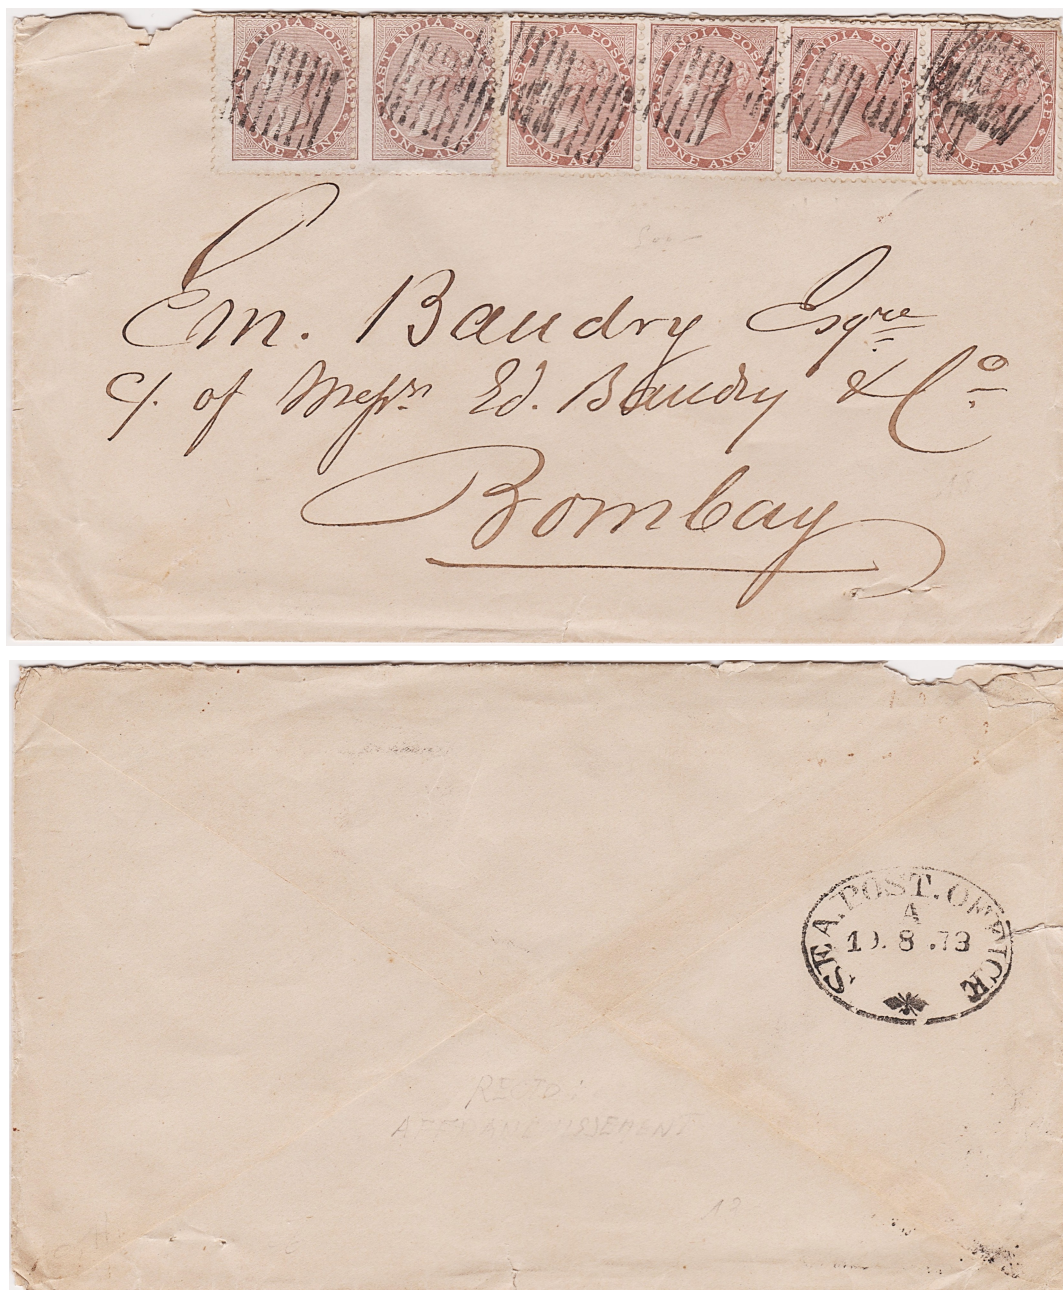 EAST INDIA POSTAGE ONE ANNA
EAST INDIA POSTAGE ONE ANNA
EAST INDIA POSTAGE ONE ANNA
EAST INDIA POSTAGE ONE ANNA
EAST INDIA POSTAGE ONE ANNA
EAST INDIA POSTAGE ONE ANNA
Em. Baudry Esqre
c/. of Messrs Ed. Baudry & Co
Bombay
SEA.POST.OFFICE
A
19.8.73
RECTO:
AFFRANCHISSEMENT